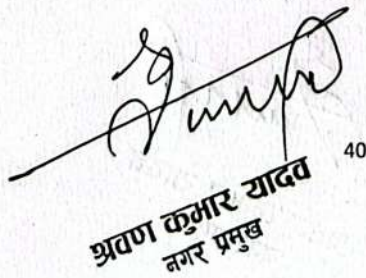 40
श्रवण कुमार यादव
नगर प्रमुख